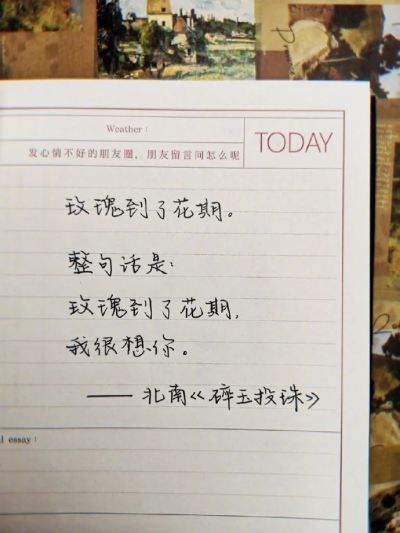 Weather:
TODAY
发心情不好的朋友圈，朋友留言问怎么呢
玫瑰到了花期。
整句话是:
玫瑰到了花期,
我很想你。
——北南《碎玉投珠》
essay: